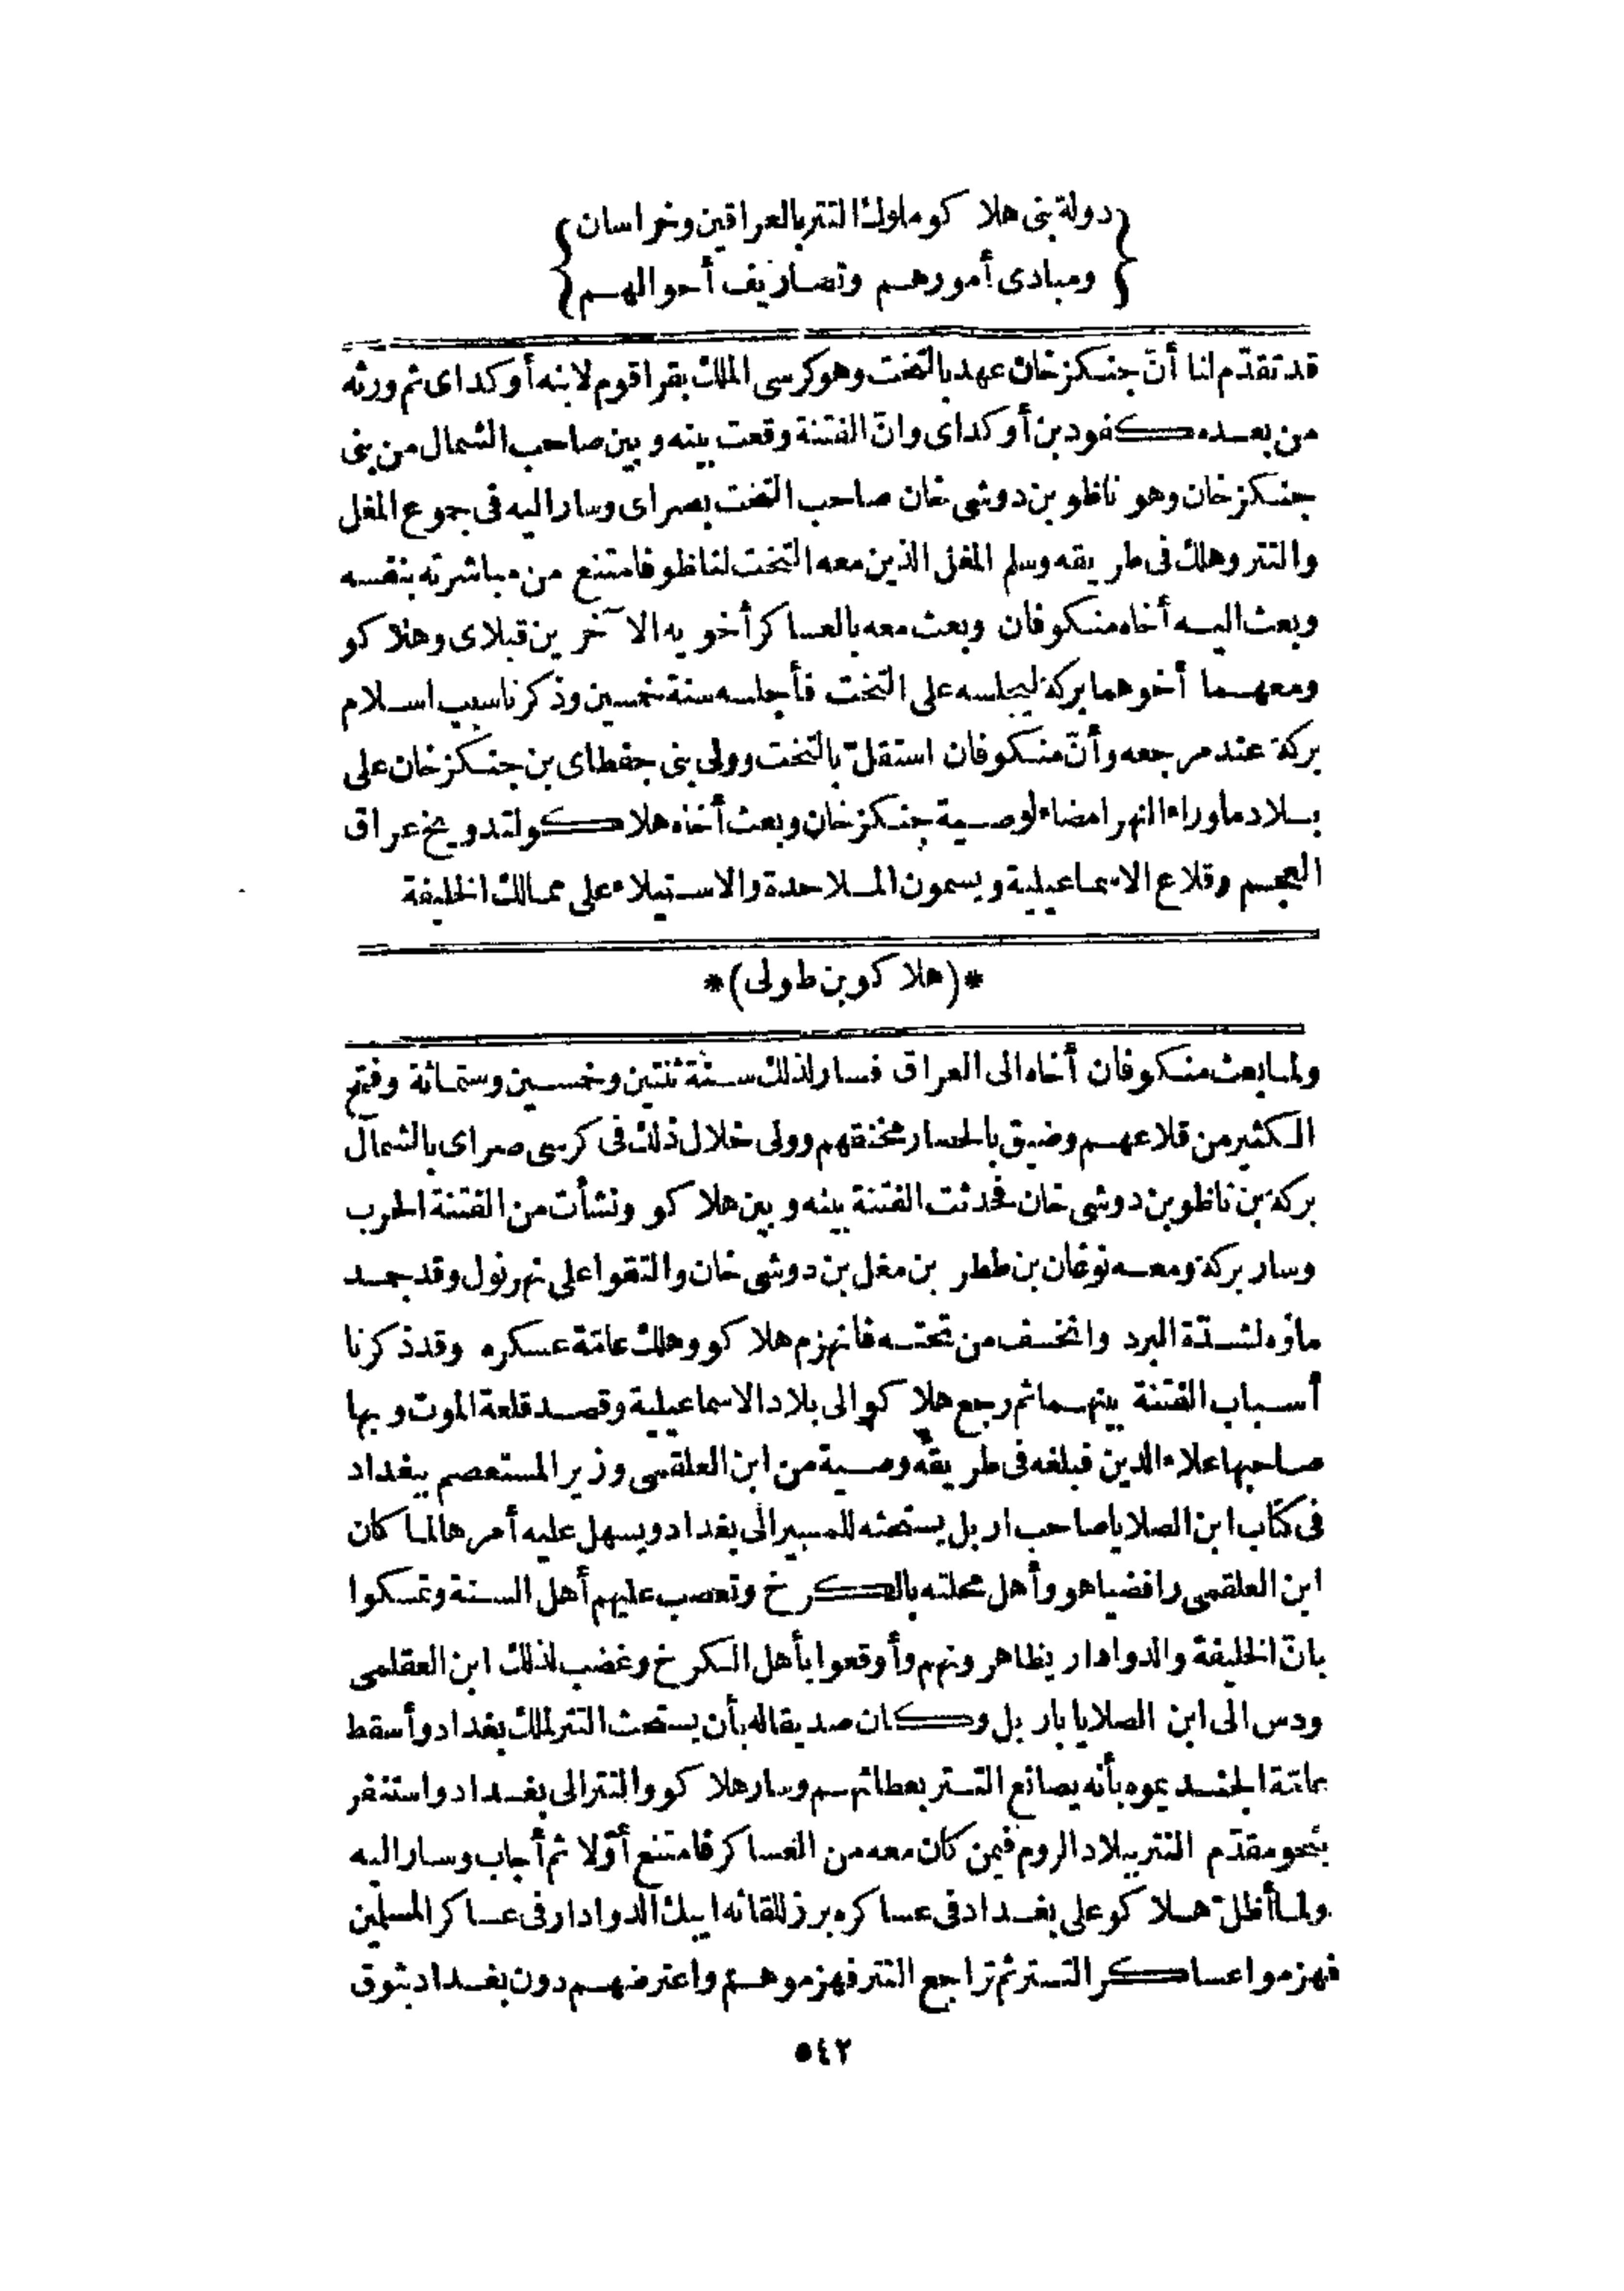 دولة بنى هلاكو ملوك التتر بالعراقين وخراسان
ومبادى أمورهم وتصاريف أحوالهم
قد تقدّم لنا أنّ جنكزخان عهد بالتخت وهو كرسى الملك بقراقوم لابنه أوكداى ثم ورثه
من بعده كفود بن أوكداى وانّ الفتنة وقعت بينه وبين صاحب الشمال من بنى
جنكزخان وهو ناظو بن دوشى خان صاحب التخت بصراى وسار اليه فى جموع المغل
والتتر وهلك فى طريقه وسلم المغل الذين معه التخت لناظو فامتنع من مباشرته بنفسه
وبعث اليه أخاه منكوفان وبعث معه بالعساكر أخويه الآخرين قبلاى وهلاكو
ومعهما أخوهما بركة ليجلسه على التخت فأجلسه سنة خمسين وذكرنا سبب اسلام
بركة عند مرجعه وأنّ منكوفان استقلّ بالتخت وولى بنى جفطاى بن جنكزخان على
بلاد ماوراء النهر امضاء لوصية جنكزخان وبعث أخاه هلاكو لتدويخ عراق
العجم وقلاع الاسماعيلية ويسمون الملاحدة والاستيلاء على ممالك الخليفة
*(هلاكو بن طولى)*
ولما بعث منكوفان أخاه الى العراق فسار لذلك سنة ثنتين وخمسين وستمائة وفتح
الكثير من قلاعهم وضيق بالحصار مخنقهم وولى خلال ذلك فى كرسى صراى بالشمال
بركة بن ناظو بن دوشى خان فحدثت الفتنة بينه وبين هلاكو ونشأت من الفتنة الحرب
وسار بركة ومعه نوغان بن ططر بن مغل بن دوشى خان والتقوا على نهر نول وقد جمد
ماؤه لشدّة البرد وانخسف من تحته فانهزم هلاكو وهلك عامّة عسكره وقد ذكرنا
أسباب الفتنة بينهما ثم رجع هلاكو الى بلاد الاسماعيلية وقصد قلعة الموت وبها
صاحبها علاء الدين فبلغه فى طريقه وصية من ابن العلقمى وزير المستعصم ببغداد
فى كتاب ابن الصلايا صاحب اربل يستحثه للمسير الى بغداد ويسهل عليه أمرها لما كان
ابن العلقمى رافضيا هو وأهل محلته بالكرخ وتعصب عليهم أهل السنة وتمسكوا
بانّ الخليفة والدوادار يظاهرونهم وأوقعوا بأهل الكرخ وغضب لذلك ابن العقلمى
ودس الى ابن الصلايا باربل وكان صديقا له بأن يستحث التتر لملك بغداد وأسقط
عامّة الجند يموه بأنه يصانع التتر بعطائهم وسار هلاكو والتتر الى بغداد واستنفر
بنحو مقدّم التتر ببلاد الروم فيمن كان معه من العساكر فامتنع أوّلا ثم أجاب وسار اليه
ولما أظلّ هلاكو على بغداد فى عساكره برز للقائه ايبك الدوادار فى عساكر المسلمين
فهزموا عساكر التتر ثم تراجع التتر فهزموهم واعترضهم دون بغداد بثوق
٥٤٢